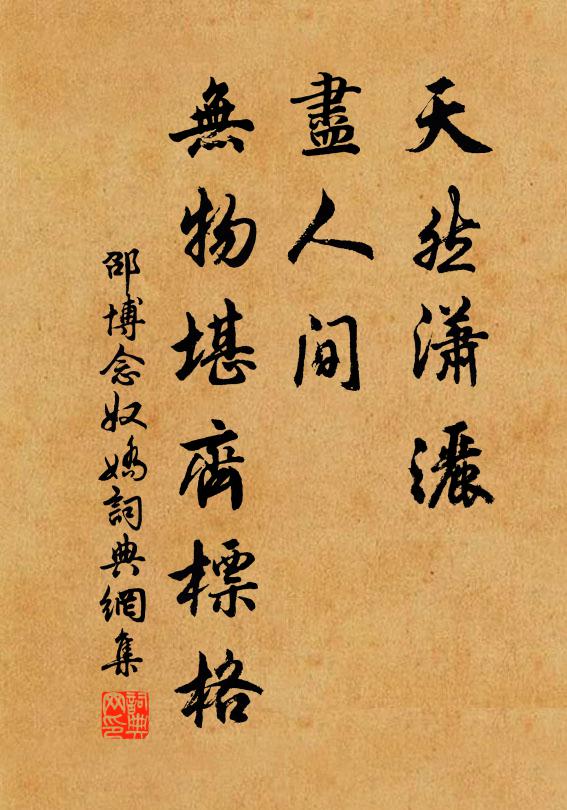 天然瀟灑
盡人间
無物堪齊標格
邵博念奴嬌詞典網集
詞典网印